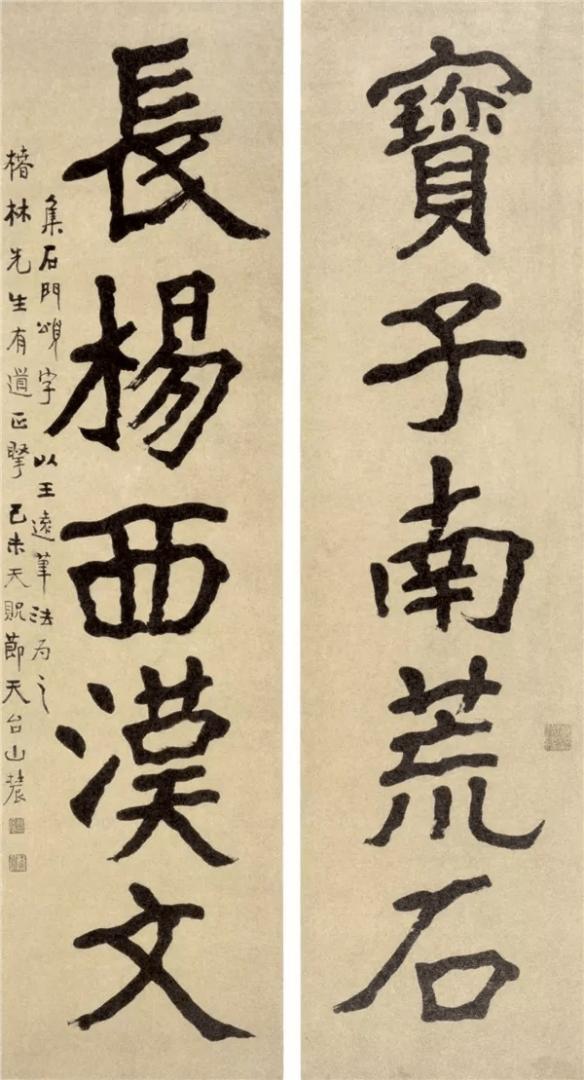 寶子南荒石
長楊西漢文
集石門頌字以王遠筆法為之
椿林先生有道正擘己未天貺節天台山農